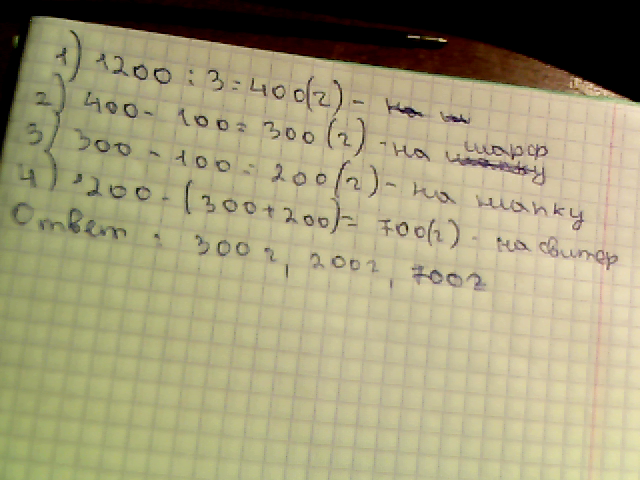 1) 1200 : 3 = 400(г) -
2) 400 - 100 = 300(г) - на шарф
3) 300 - 100 = 200(г) - на шапку
4) 1200 - (300 + 200) = 700(г) - на свитер
Ответ : 300 г, 200 г, 700 г